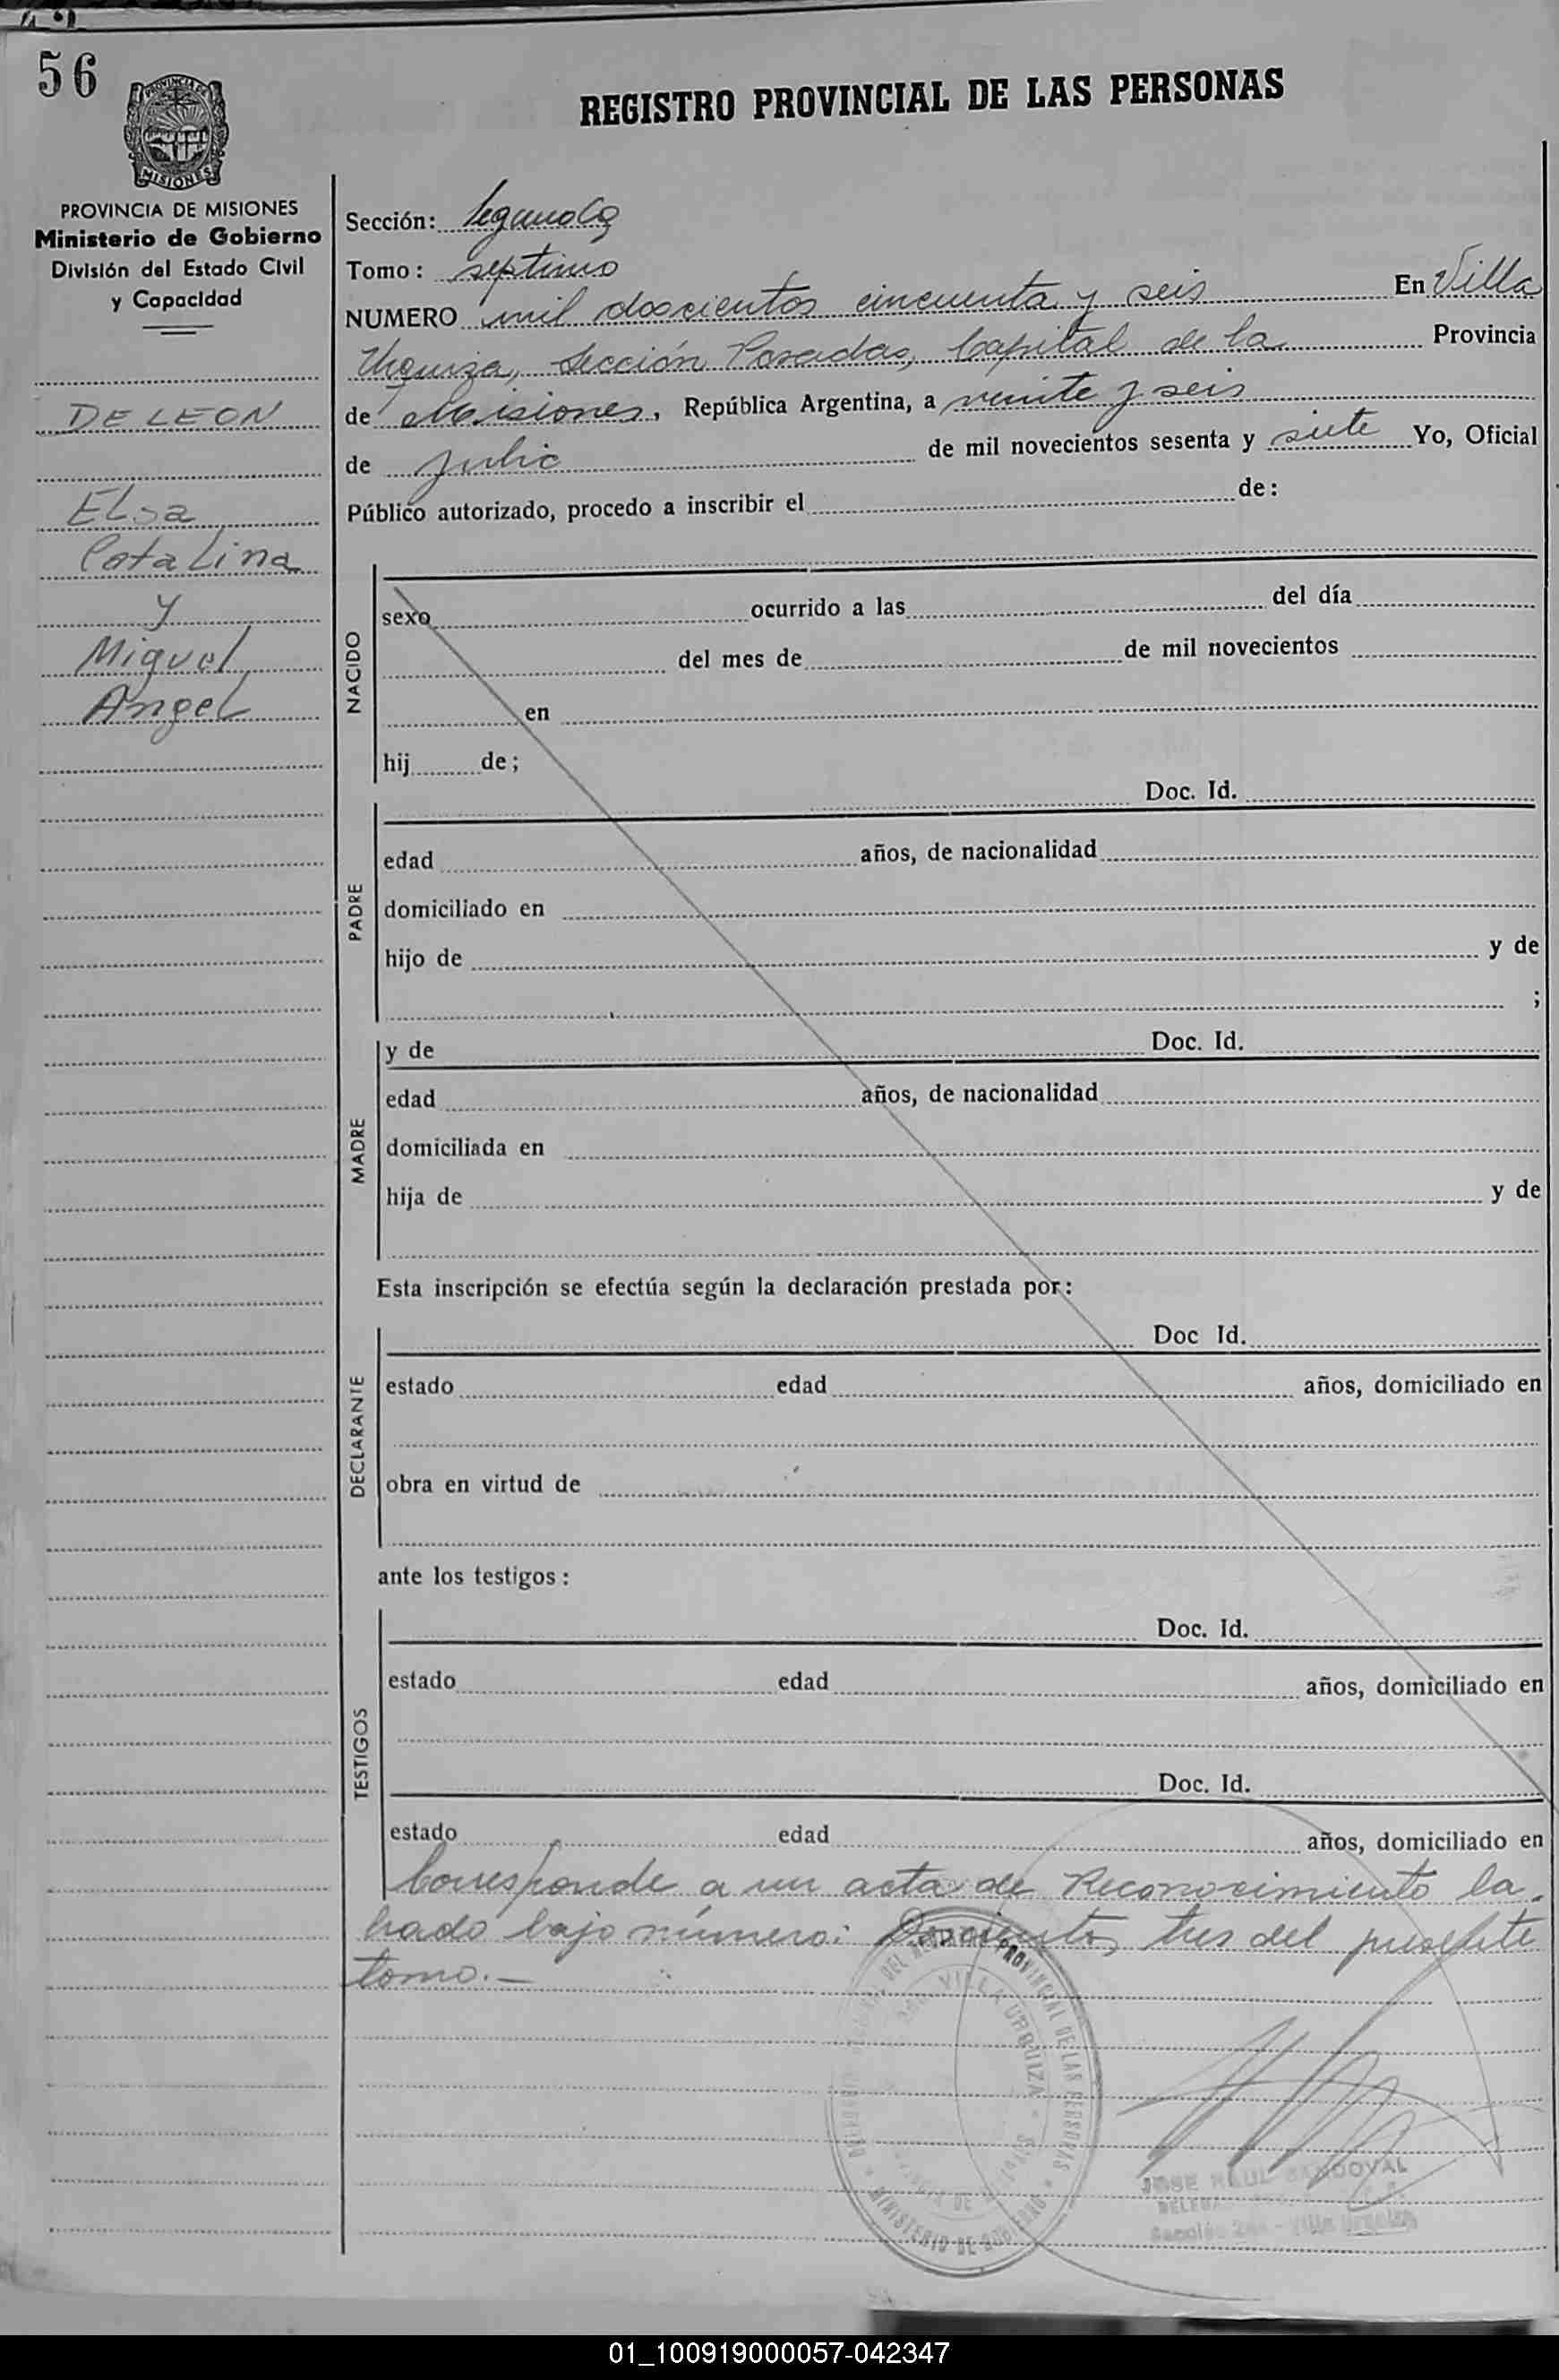 56
PROVINCIA DE
MISIONES
REGISTRO PROVINCIAL DE LAS PERSONAS
PROVINCIA DE MISIONES
Ministerio de Gobierno
División del Estado Civil
y Capacidad
DE LEON
Elsa
Catalina
y
Miguel
Angel
Sección: Segunda
Tomo: septimo
NUMERO mil doscientos cincuenta y seis En Villa
Urquiza, Sección Posadas, Capital de la Provincia
de Misiones, República Argentina, a veinte y seis
de julio de mil novecientos sesenta y siete Yo, Oficial
Público autorizado, procedo a inscribir el de:
NACIDO
sexo ocurrido a las del día
del mes de de mil novecientos
en
hij de;
PADRE
Doc. Id.
edad años, de nacionalidad
domiciliado en
hijo de y de
;
MADRE
y de Doc. Id.
edad años, de nacionalidad
domiciliada en
hija de y de
Esta inscripción se efectúa según la declaración prestada por:
DECLARANTE
Doc Id.
estado edad años, domiciliado en
obra en virtud de
ante los testigos:
TESTIGOS
Doc. Id.
estado edad años, domiciliado en
Doc. Id.
estado edad años, domiciliado en
Corresponde a un acta de Reconocimiento la
brado bajo número: Doscientos tres del presente
tomo.-
PROVINCIAL DE LAS PERSONAS
VILLA URQUIZA
MINISTERIO DE GOBIERNO
JOSE RAUL SANDOVAL
Sección 2da - Villa Urquiza
01_100919000057-042347